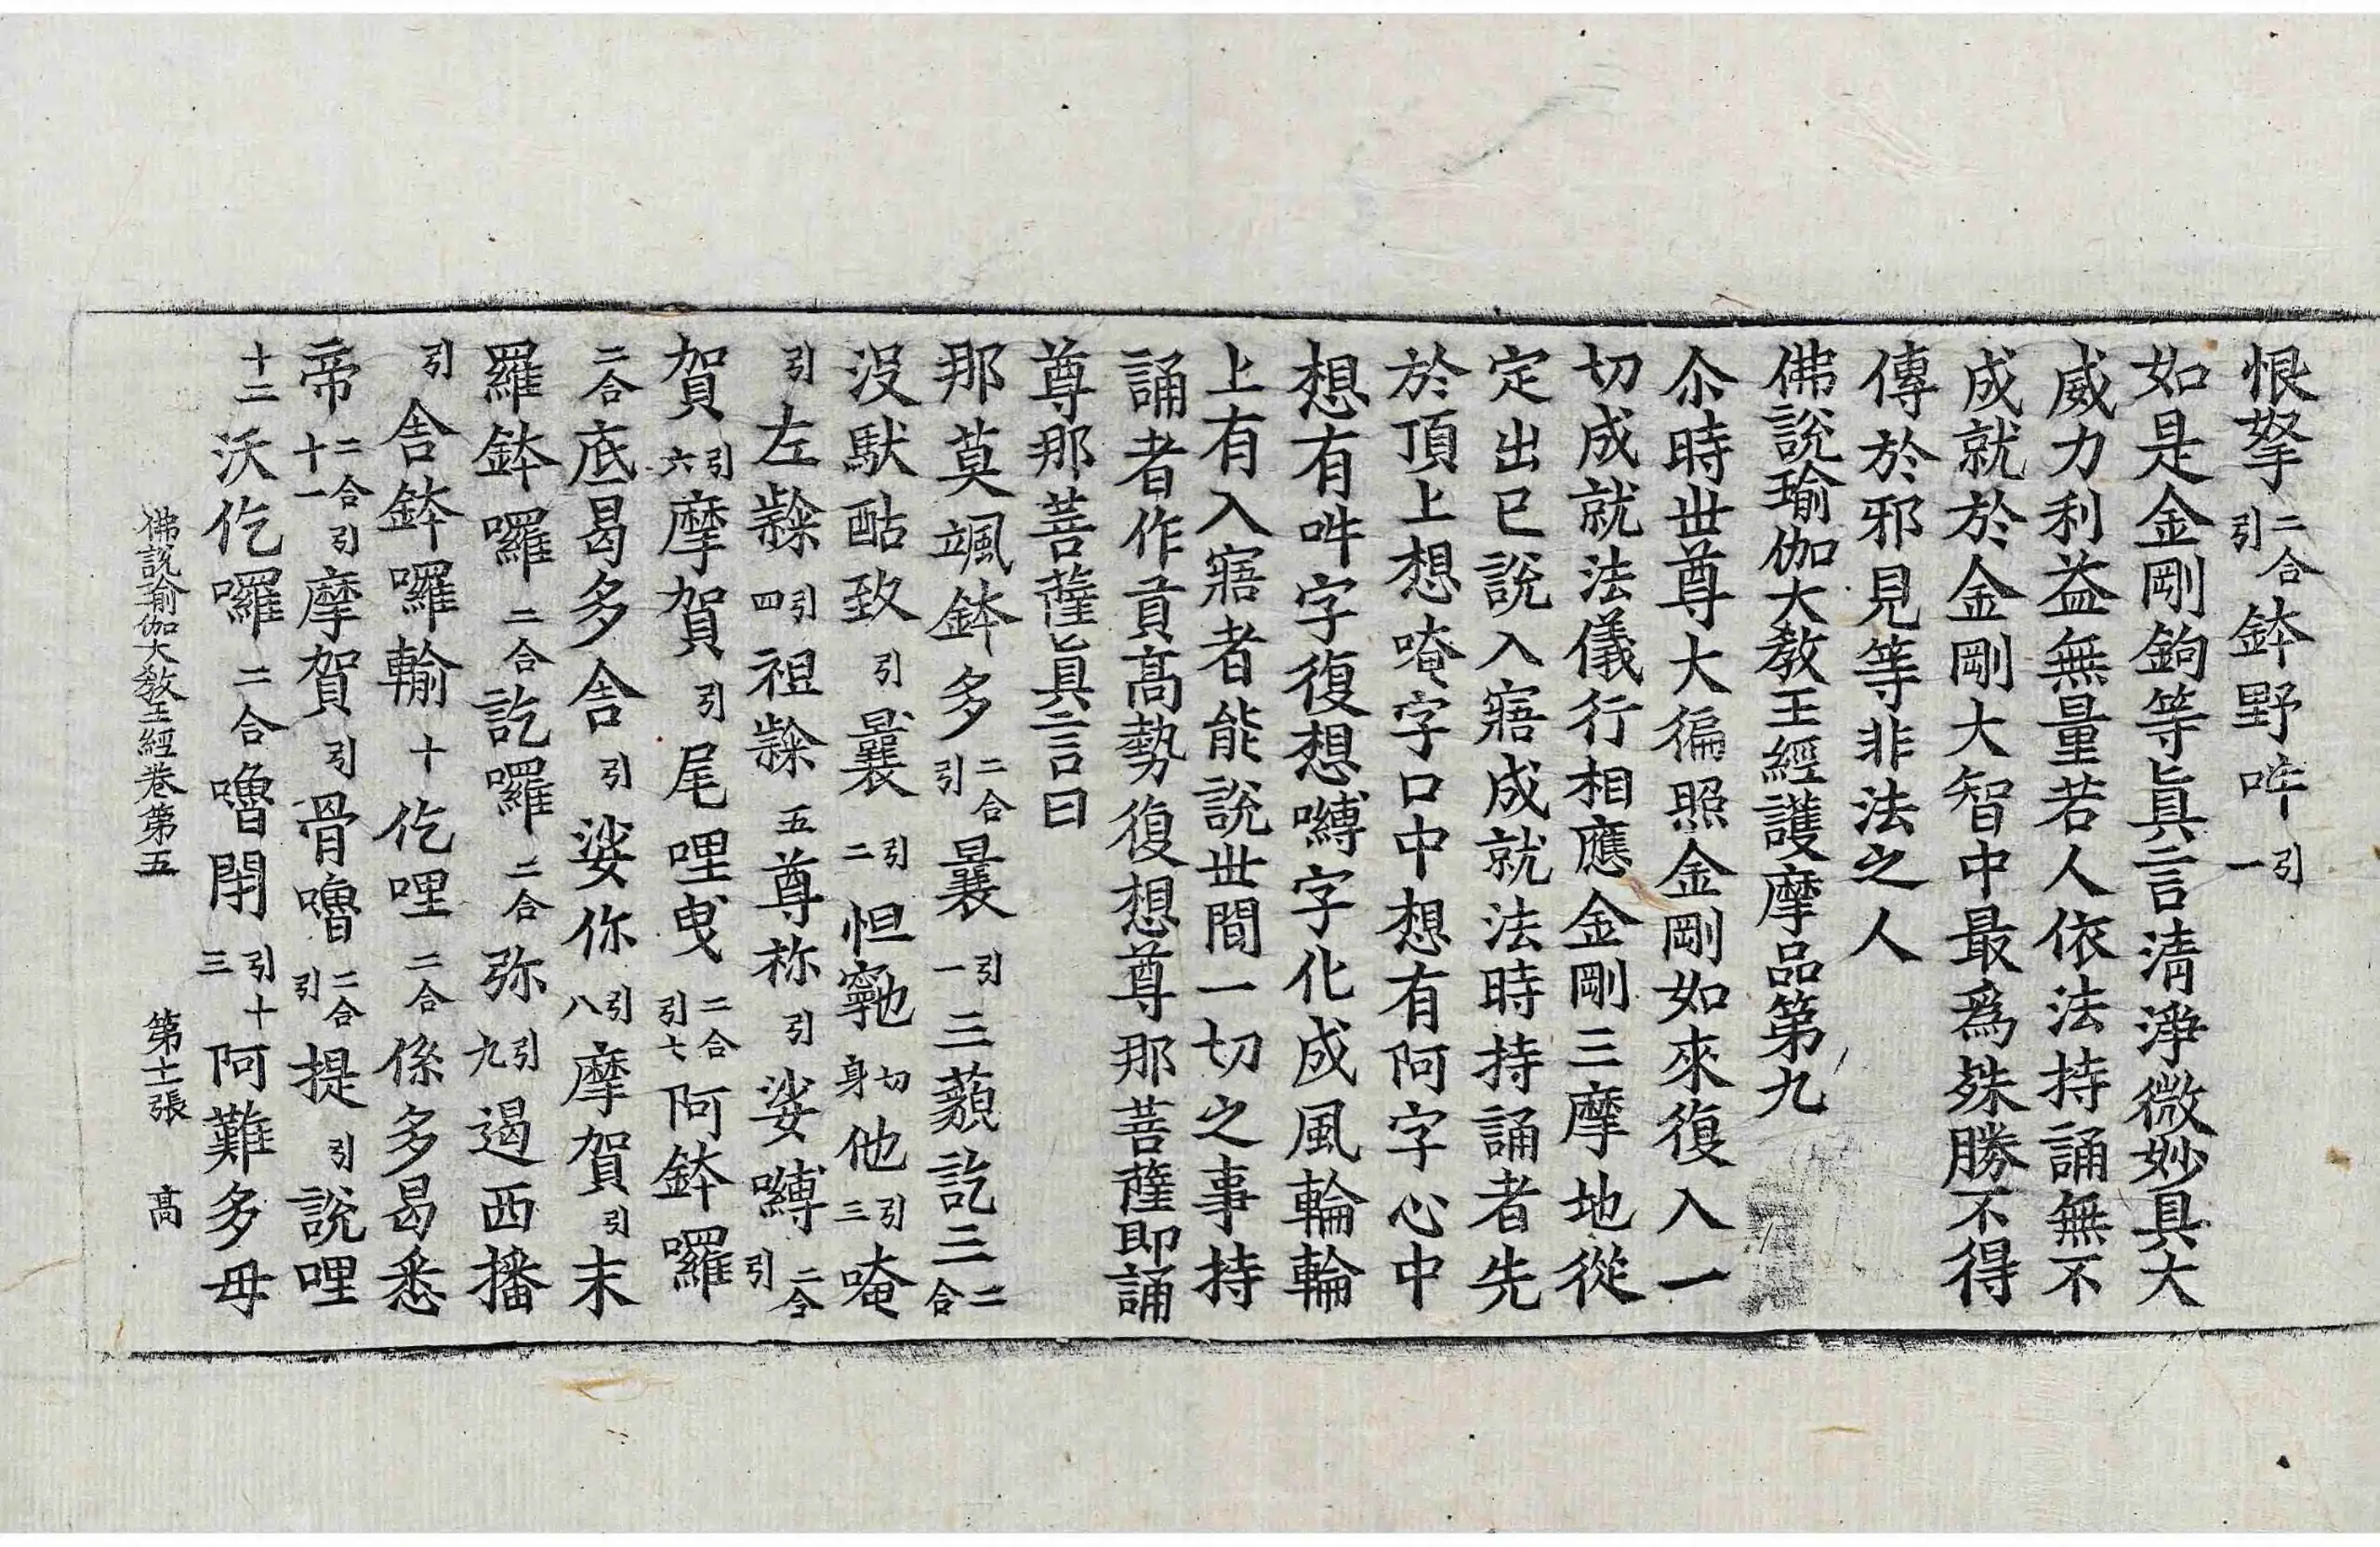 恨拏二合引鉢野吽引一
如是金剛鉤等眞言清淨微妙具大
威力利益無量若人依法持誦無不
成就於金剛大智中最爲殊勝不得
傳於邪見等非法之人
佛說瑜伽大教王經護摩品第九
尒時世尊大徧照金剛如來復入一
切成就法儀行相應金剛三摩地從
定出已說入寤成就法時持誦者先
於頂上想唵字口中想有阿字心中
想有吽字復想嚩字化成風輪輪
上有入寤者能說世間一切之事持
誦者作貢高勢復想尊那菩薩即誦
尊那菩薩眞言曰
那莫颯鉢多二合引曩引一三藐訖三二合
沒馱酤致引曩引二怛寧也切身他引三唵
引左𨽁引四祖𨽁五尊祢引娑嚩二合引
賀引六摩賀引尾哩曳二合引七阿鉢囉
二合底曷多舍引娑你引八摩賀引末
羅鉢囉二合訖囉二合弥引九遏西播
引舍鉢囉輸十仡哩二合係多曷悉
帝二合引十一摩賀引骨嚕二合引提引說哩
十二沃仡囉二合嚕閉引十三阿難多毋
佛說瑜伽大教王經卷第五 第十二張 高